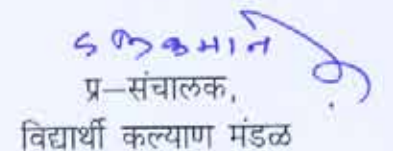 प्र—संचालक,
विद्यार्थी कल्याण मंडळ